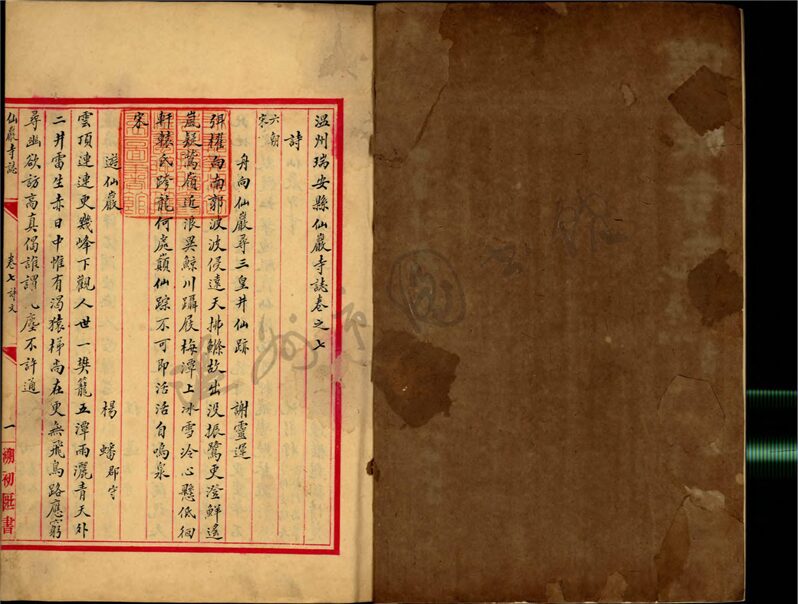 溫州瑞安縣仙巖寺誌卷之七
詩
六朝
宋
舟向仙巖尋三皇井仙跡 謝靈運
弭櫂向南郭波波侵遠天拂鰷故出没振鷺更澄鮮遙
嵐疑鷲嶺近浪異鯨川躡屐梅潭上冰雪冷心懸低徊
軒轅氏跨龍何處巔仙踪不可即活活自鳴泉
宋
遊仙巖 楊蟠郡守
雲頂連連更幾峰下觀人世一樊籠五潭雨灑青天外
二井雷生赤日中惟有濁猿梯尚在更無飛鳥路應窮
尋幽欲訪高真侶誰謂凡塵不許通
仙巖寺誌 卷七詩文 一